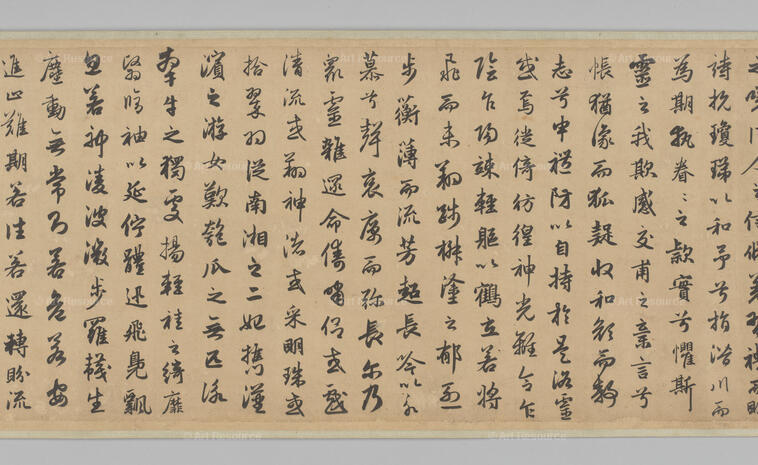 詩抗瓊珶以和予兮指潛川而
為期執眷〻之款實兮懼斯
靈之我欺感交甫之棄言兮
悵猶豫而狐疑收和顏而靜
志兮申禮防以自持於是洛靈
感焉徙倚彷徨神光離合乍
陰乍陽竦輕軀以鶴立若將
飛而未翔踐椒塗之郁烈
步蘅薄而流芳超長吟以永
慕兮聲哀厲而彌長爾乃
眾靈雜遝命儔嘯侶或戲
清流或翔神渚或采明珠或
拾翠羽從南湘之二妃攜漢
濱之游女歎匏瓜之無匹詠
牽牛之獨處揚輕袿之綺靡
翳脩袖以延佇體迅飛鳧飄
忽若神淩波微步羅襪生
塵動無常則若危若安
進止難期若往若還轉盼流
© Art Resource